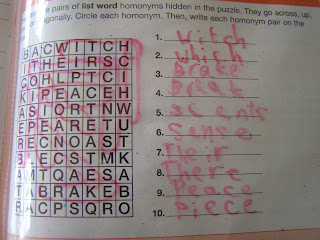 pairs of list word homonyms hidden in the puzzle. They go across, up,
agonally. Circle each homonym. Then, write each homonym pair on the
BACWITCH
ITHEIRSC
COHLPTCI
KIPEACEH
ASIORTNW
EPEARETU
RECNOAST
BLECSTMK
AMTQAESA
TABRAKEB
RACPSQRO
1. witch
2. which
3. Brake
4. Break
5. scents
6. Sense
7. Their
8. There
9. Peace
10. Piece